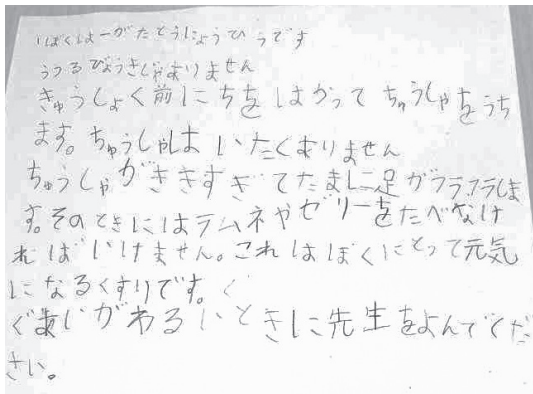 ぼくは一がたとうにょうびょうです
うつるびょうきじゃありません
きゅうしょく前にちをはかってちゅうしゃをうち
ます。ちゅうしゃはいたくありません
ちゅうしゃがききすぎてたまに足がフラフラしま
す。そのときにはラムネやゼリーをたべなけ
ればいけません。これはぼくにとって元気
になるくすりです。く
ぐあいがわるいときに先生をよんでくだ
さい。